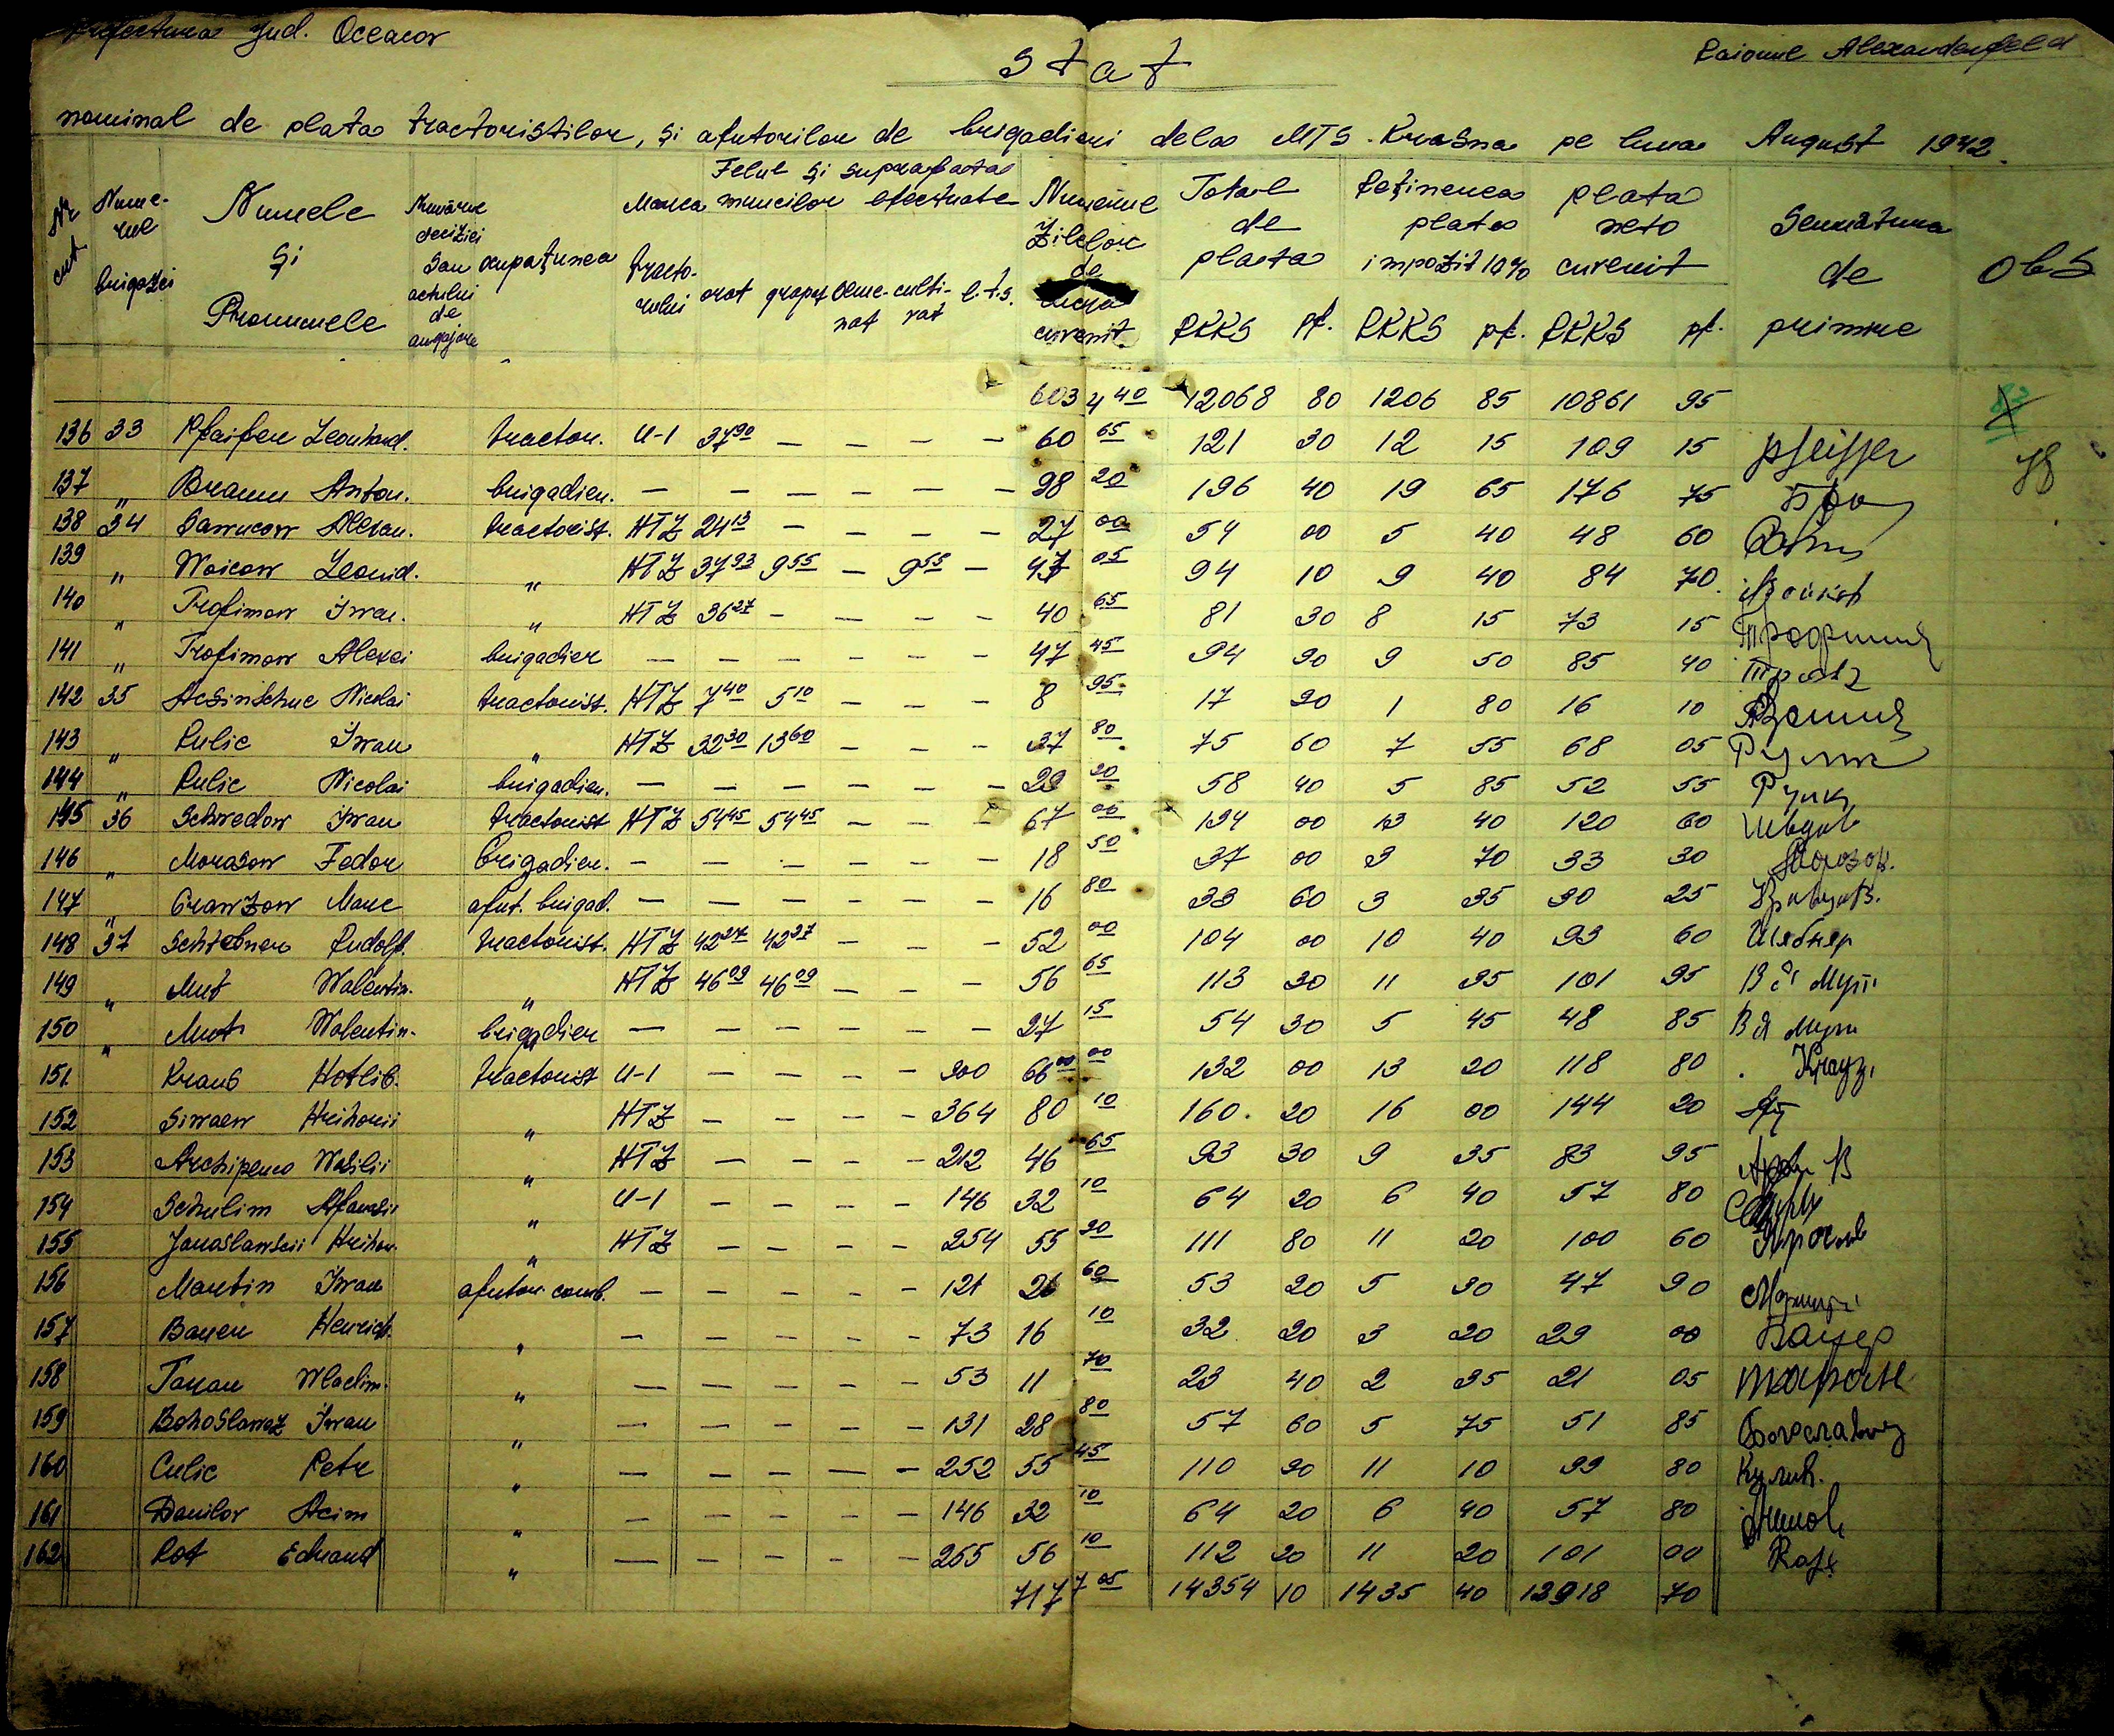 Prefectura Jud. Oceacov
Raionul Alexanderfeld
Stat
nominal de plata tractoristilor, și ajutorilor de brigadieri dela MTS. Krasna pe luna August 1942.
Nr crt. Numerul brigăzei Numele și Pronumele Numărul deciziei sau actului de angajare ocupațunea Marca tractorului Felul și suprafața muncilor efectuate arat grapat semenat cultivat l.t.s. Numărul zilelor de lucru curenit. Total de plata RKKS pf. Reținerea plata impozit 10% RKKS pf. plata neto curenit RKKS pf. Semnătura de primire Obs
603 4 40 12068 80 1206 85 10861 95
136 33 Pfaifer Leonhard. tractor. U-1 37 90 — — — — 60 65 121 30 12 15 109 15 Pfeiffer 78
137 " Braun Anton. brigadier. — — — — — — 98 20 196 40 19 65 176 75
138 34 Alexan. tractorist. HTZ 24 13 — — — — 27 00 54 00 5 40 48 60
139 " Woicow Leonid. " HTZ 37 93 9 55 — 9 55 — 47 05 94 10 9 40 84 70.
140 " Trofimow Iwan. " HTZ 36 27 — — — — 40 65 81 30 8 15 73 15
141 " Trofimow Alexei brigadier — — — — — — 47 45 94 90 9 50 85 40
142 35 Nicolai tractorist. HTZ 7 40 5 10 — — — 8 95 17 90 1 80 16 10
143 " Rulic Iwan " HTZ 32 30 13 60 — — — 37 80 75 60 7 55 68 05
144 " Rulic Nicolai brigadier. — — — — — — 29 20 58 40 5 85 52 55 Рулик
145 36 Schwedow Iwan tractorist HTZ 54 45 54 45 — — — 67 00 134 00 13 40 120 60 Шведов
146 " Morasow Fedor brigadier. — — — — — — 18 50 37 00 3 70 33 30 Морозов.
147 " Crawzow Marc ajut. brigad. — — — — — — 16 80 33 60 3 35 30 25 Кравцов.
148 37 Schtebner Rudolf. tractorist. HTZ 42 27 42 27 — — — 52 00 104 00 10 40 93 60 Штебнер
149 " Mut Walentin. " HTZ 46 09 46 09 — — — 56 65 113 30 11 35 101 95
150 " Mut Walentin. brigadier — — — — — — 27 15 54 30 5 45 48 85
151 Kraus Hotlib. tractorist U-1 — — — — 300 66 00 132 00 13 20 118 80
152 Siwaew Hrihorii " HTZ — — — — 364 80 10 160. 20 16 00 144 20
153 Archipenco Wasilii " HTZ — — — — 212 46 65 93 30 9 35 83 95
154 Schulim Afanasii " U-1 — — — — 146 32 10 64 20 6 40 57 80
155 Jaroslawscii Hrihor. " HTZ — — — — 254 55 90 111 80 11 20 100 60
156 Martin Iwan ajutor comb. — — — — — 121 26 60 53 20 5 30 47 90
157 Bauer Henrich. " — — — — — 73 16 10 32 20 3 20 29 00 Бауер
158 Taran Wladim. " — — — — — 53 11 70 23 40 2 35 21 05 Таран
159 Bohoslawez Iwan " — — — — — 131 28 80 57 60 5 75 51 85 Богославец
160 Culic Petr " — — — — — 252 55 45 110 90 11 10 99 80 Кулик.
161 Danilov Acim " — — — — — 146 32 10 64 20 6 40 57 80
162 Rot Eduard " — — — — — 255 56 10 112 20 11 20 101 00
717 7 05 14354 10 1435 40 12918 70